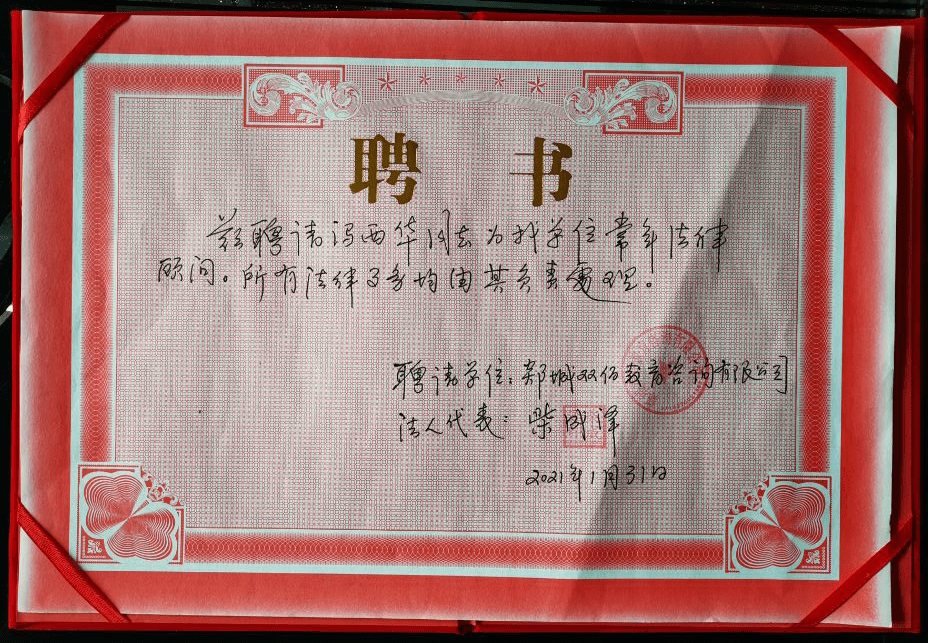 聘 书
兹聘请冯西华同志为我单位常年法律
顾问。所有法律事务均由其负责处理。
聘请单位:郯城双佰教育咨询有限公司
法人代表:柴成泽
2021年1月31日